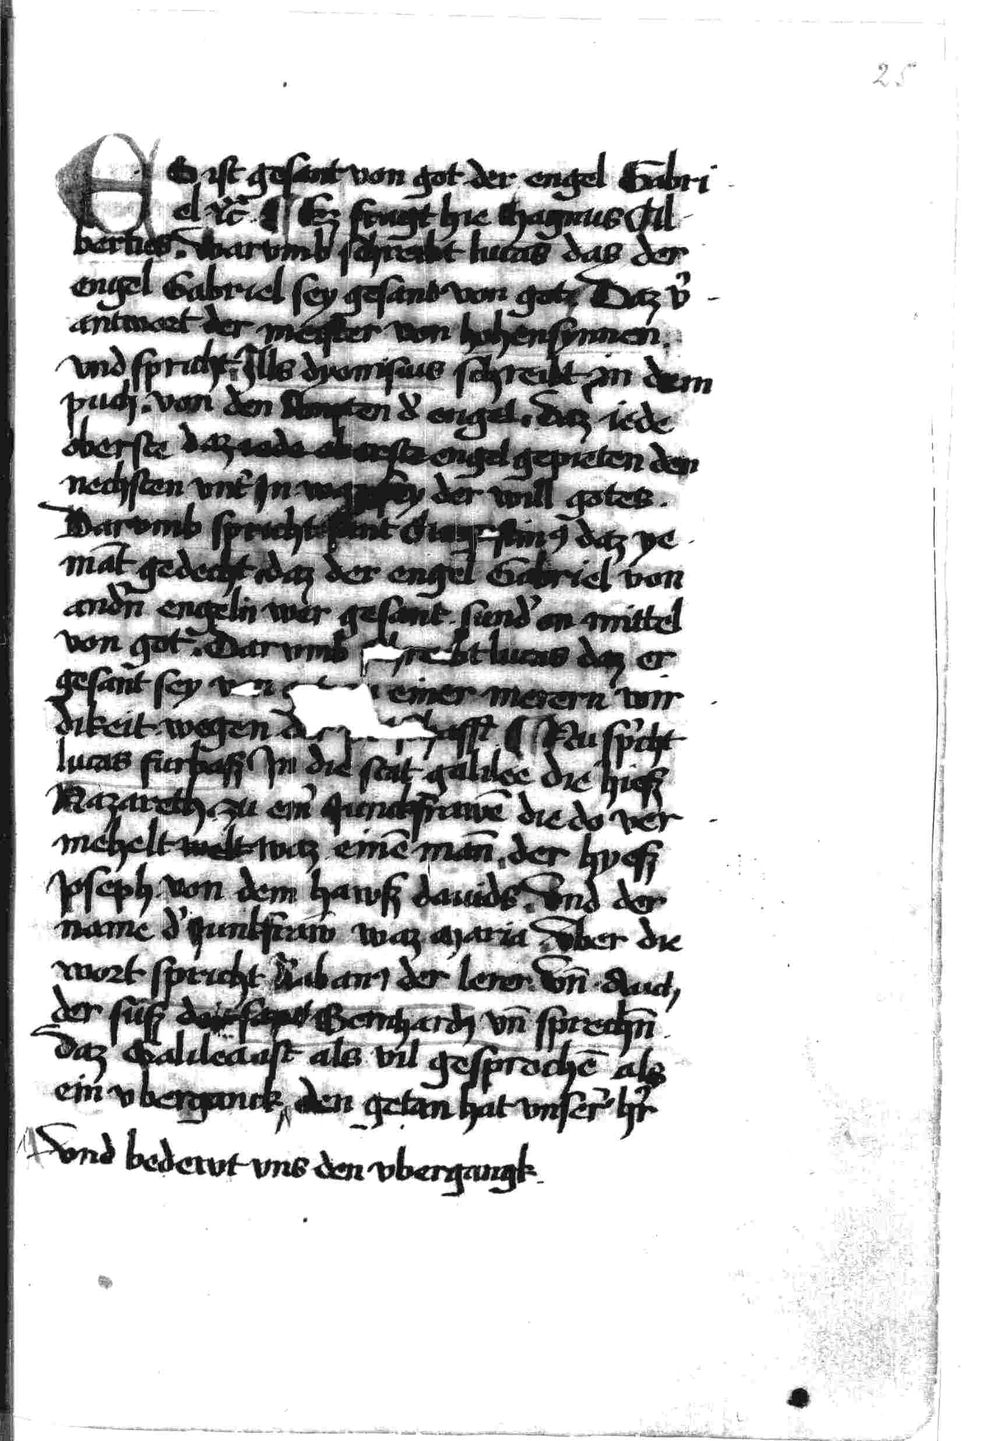 25
ES ist gesant von got der engel Gabri
el ⁊c̄ ¶ Ez fragt hie Magnus Al
bertus. Warvmb schreibt lucas das der
engel Gabriel sey gesant von got. Daz v̾
antwort der meister von hohensynnen.
vnd spricht. Als dyonisius schreibt in dem
puch. von den Ampten d̾ engel. daz iede
oberste daz iede oberste engel gepieten den
nechsten vnt̾ In was sey der will gotes.
Darvmb spricht sant Augustinꝰ daz ye
māt gedecht daz der engel Gabriel von
andn̄ engeln wer gesant. sund̾ on mittel
von got. Darvmb schreibt lucas daz er
gesant sey von einer merern wir
dikeit wegen der ¶ Nu spricht
lucas furbaß In die stat galilee die hieß
Nazareth. zu ein̾ Junckfrawē die do ver
mehelt welt waz einē mān. der hyeß
Joseph. von dem hawß dauids. Vnd der
name d̾ Junkfraw waz Maria. Vber die
wort spricht Rabanꝰ der lerer. Vn̄ Auch
der süß Bernhard vn̄ sprechn̄
daz Galilea ist als vil gesprochē als
ein vberganck, den getan hat vnser h̾r
Vnd bedewt vns den vbergangk